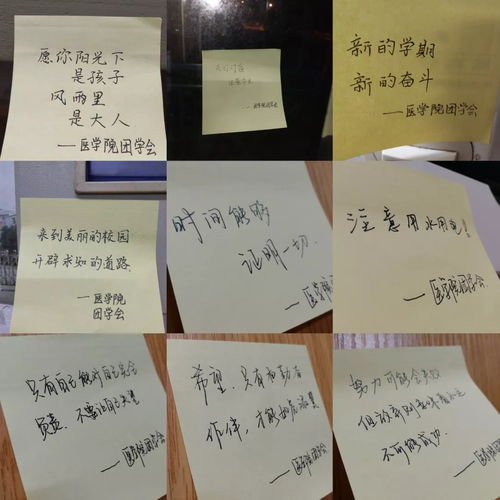 愿你阳光下
是孩子
风雨里
是大人
——医学院团学会
——医学院团学会
新的学期
新的奋斗
——医学院团学会
来到美丽的校园
开辟求知的道路
——医学院
团学会
时间能够
证明一切.
——医学院
注意用水用电!
——医学院团学会
只有自己能对自己完全
负责, 不要让自己失望
——医学院团学会
希望, 只有和勤奋
作伴, 才能如虎添翼
——医学院团学会
努力可能会失败
但放弃则意味着永远
不可能成功.
——医学院团学会